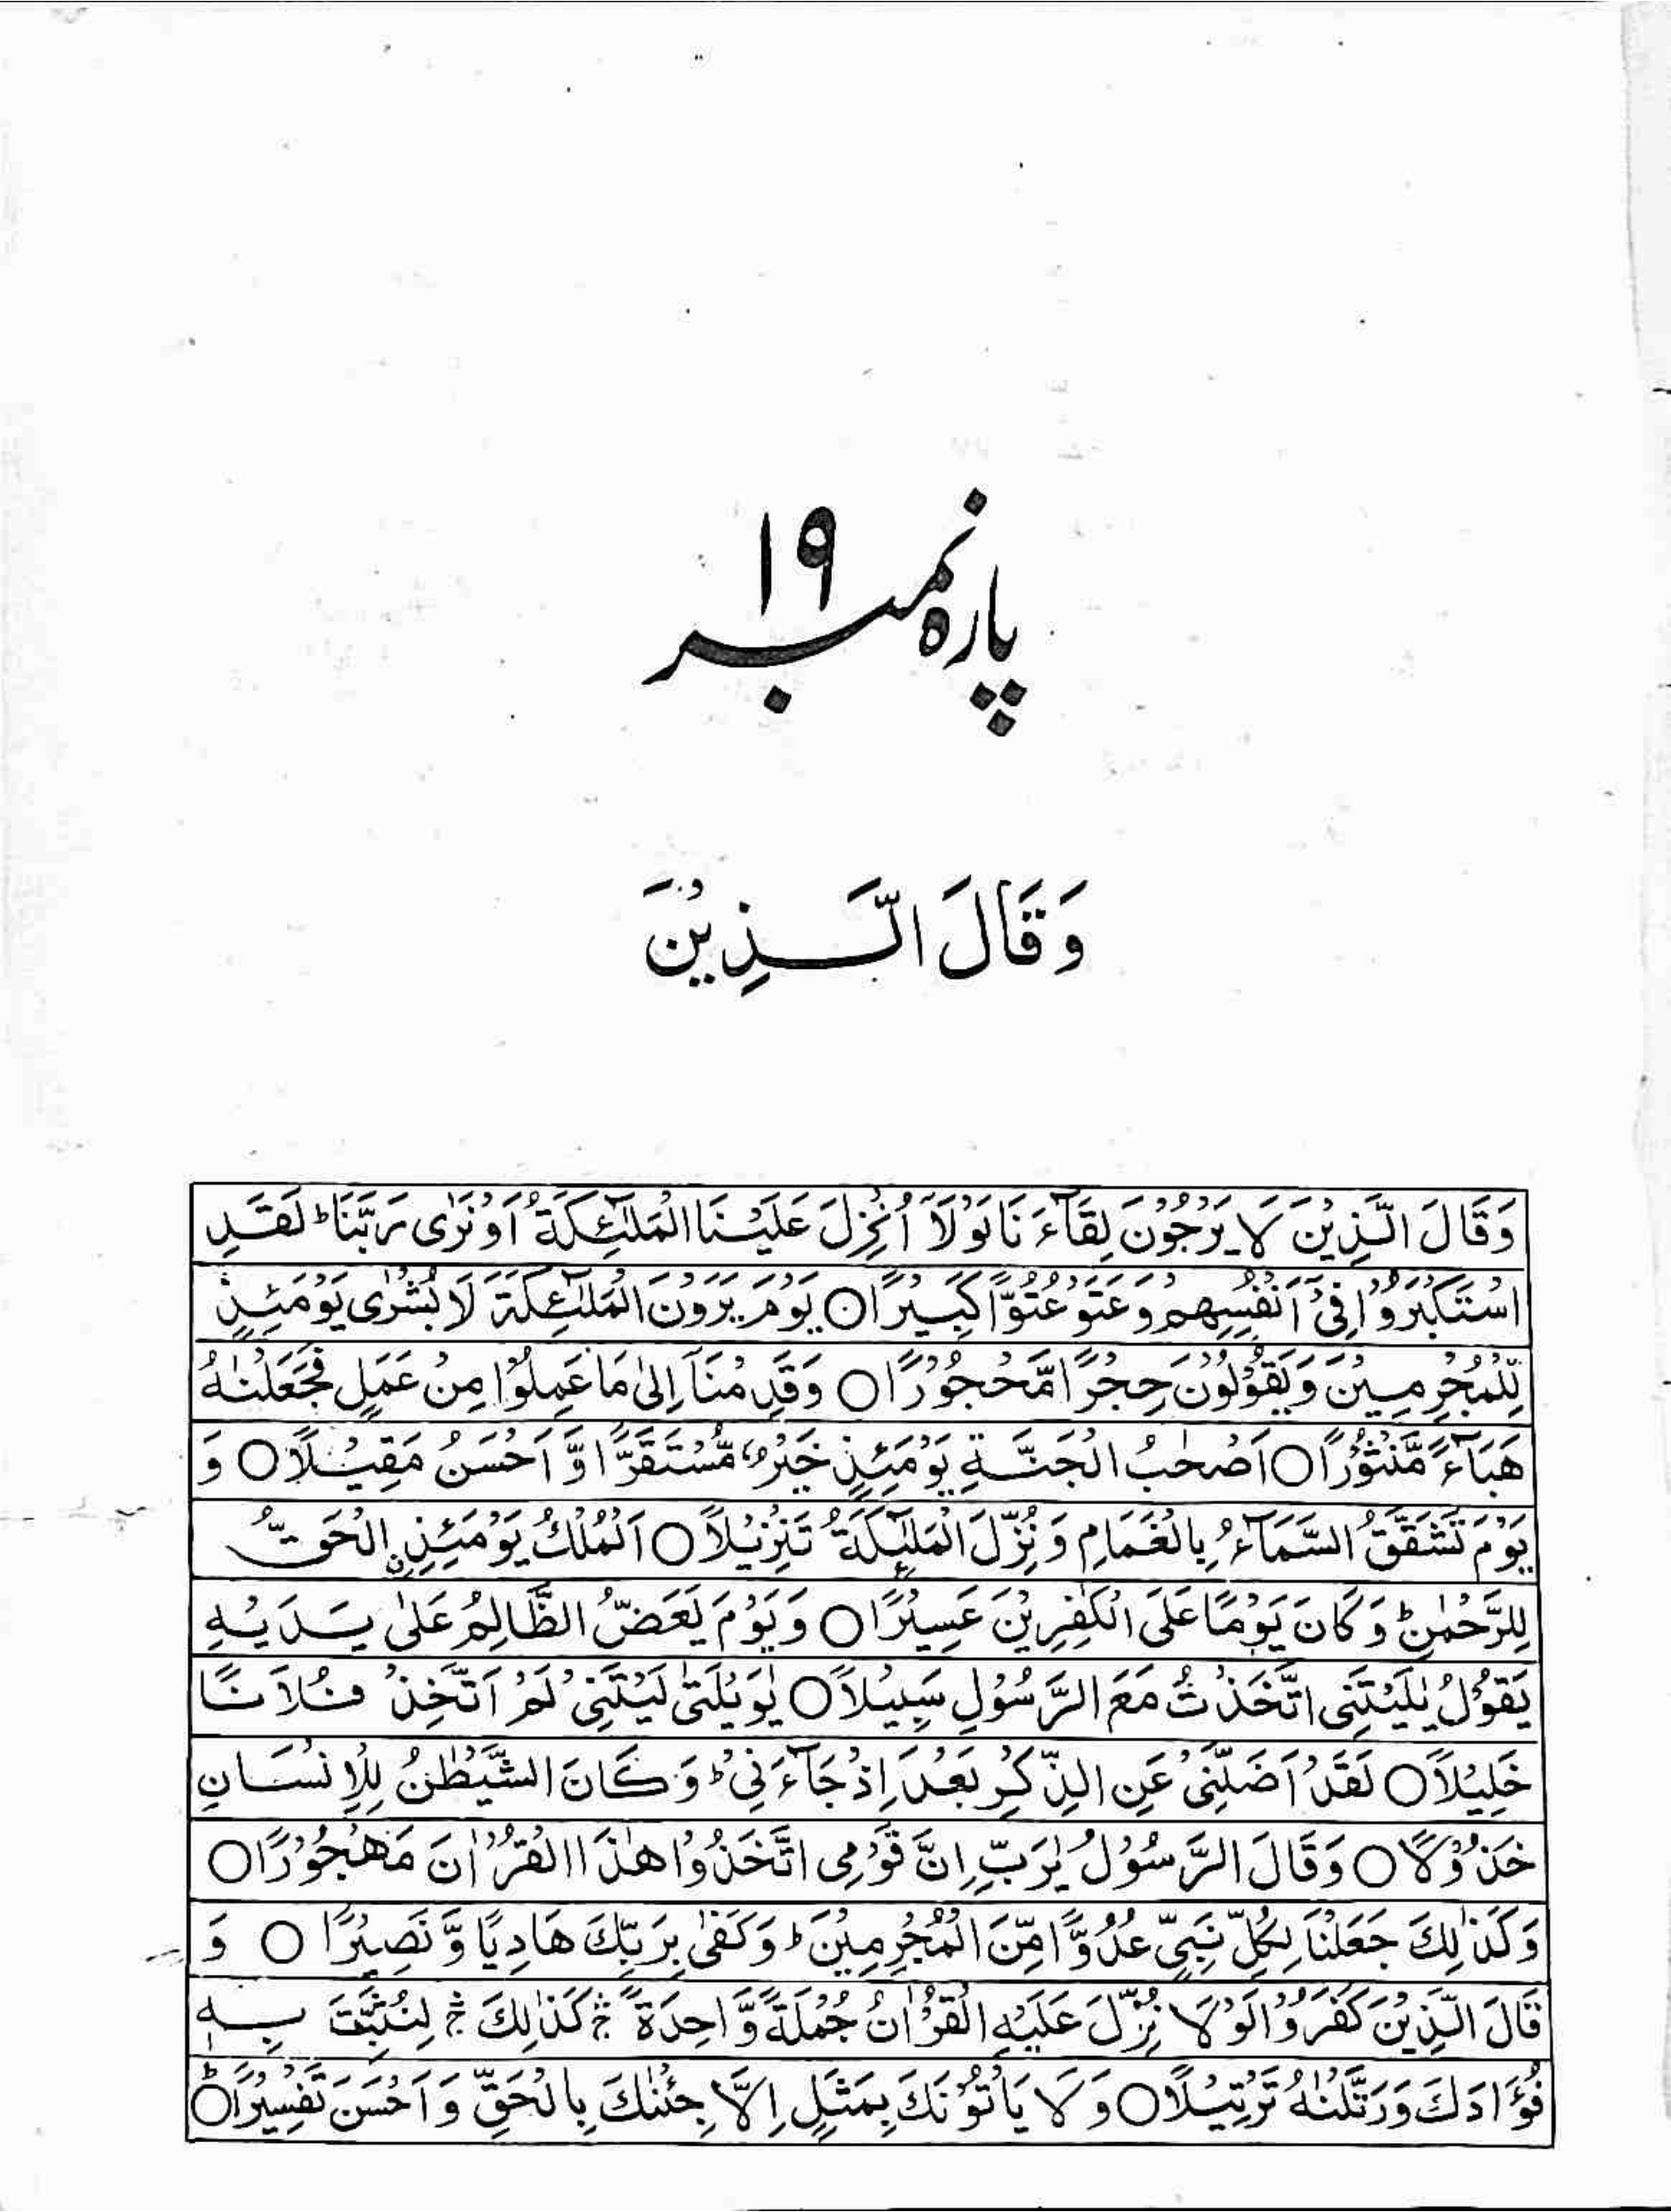 پارہ نمبر ۱۹
وَقَالَ الَّذِیْنَ
وَقَالَ الَّذِیْنَ لَا یَرْجُوْنَ لِقَآءَ نَا لَوْلَآ اُنْزِلَ عَلَیْنَا الْمَلٰٓئِکَۃُ اَوْ نَرٰی رَبَّنَا ؕ لَقَدِ
اسْتَکْبَرُوْا فِیْٓ اَنْفُسِھِمْ وَعَتَوْ عُتُوًّا کَبِیْرًا ○ یَوْمَ یَرَوْنَ الْمَلٰٓئِکَۃَ لَا بُشْرٰی یَوْمَئِذٍ
لِّلْمُجْرِمِیْنَ وَیَقُوْلُوْنَ حِجْرًا مَّحْجُوْرًا ○ وَقَدِ مْنَآ اِلٰی مَا عَمِلُوْا مِنْ عَمَلٍ فَجَعَلْنٰہُ
ھَبَآءً مَّنْثُوْرًا ○ اَصْحٰبُ الْجَنَّۃِ یَوْمَئِذٍ خَیْرٌ مُّسْتَقَرًّا وَّ اَحْسَنُ مَقِیْلًا ○ وَ
یَوْمَ تَشَقَّقُ السَّمَآءُ بِالْغَمَامِ وَ نُزِّلَ الْمَلٰٓئِکَۃُ تَنْزِیْلًا ○ اَلْمُلْکُ یَوْمَئِذِ نِ الْحَقُّ
لِلرَّحْمٰنِ ؕ وَ کَانَ یَوْمًا عَلَی الْکٰفِرِیْنَ عَسِیْرًا ○ وَ یَوْمَ یَعَضُّ الظَّالِمُ عَلٰی یَدَیْہِ
یَقُوْلُ یٰلَیْتَنِی اتَّخَذْتُ مَعَ الرَّسُوْلِ سَبِیْلًا ○ یٰوَیْلَتٰی لَیْتَنِیْ لَمْ اَتَّخِذْ فُلَانًا
خَلِیْلًا ○ لَقَدْ اَضَلَّنِیْ عَنِ الذِّکْرِ بَعْدَ اِذْ جَآءَ نِیْ ؕ وَ کَانَ الشَّیْطٰنُ لِلْاِنْسَانِ
خَذُوْلًا ○ وَقَالَ الرَّسُوْلُ یٰرَبِّ اِنَّ قَوْمِی اتَّخَذُوْا ھٰذَا الْقُرْاٰنَ مَھْجُوْرًا ○
وَکَذٰلِکَ جَعَلْنَا لِکُلِّ نَبِیٍّ عَدُوًّا مِّنَ الْمُجْرِمِیْنَ ؕ وَکَفٰی بِرَبِّکَ ھَادِیًا وَّ نَصِیْرًا ○ وَ
قَالَ الَّذِیْنَ کَفَرُوْا لَوْ لَا نُزِّلَ عَلَیْہِ الْقُرْاٰنُ جُمْلَۃً وَّاحِدَۃً ۚۛ کَذٰلِکَ ۚۛ لِنُثَبِّتَ بِہٖ
فُؤَادَکَ وَرَتَّلْنٰہُ تَرْتِیْلًا ○ وَ لَا یَاْتُوْنَکَ بِمَثَلٍ اِلَّا جِئْنٰکَ بِالْحَقِّ وَ اَحْسَنَ تَفْسِیْرًا ○ؕ